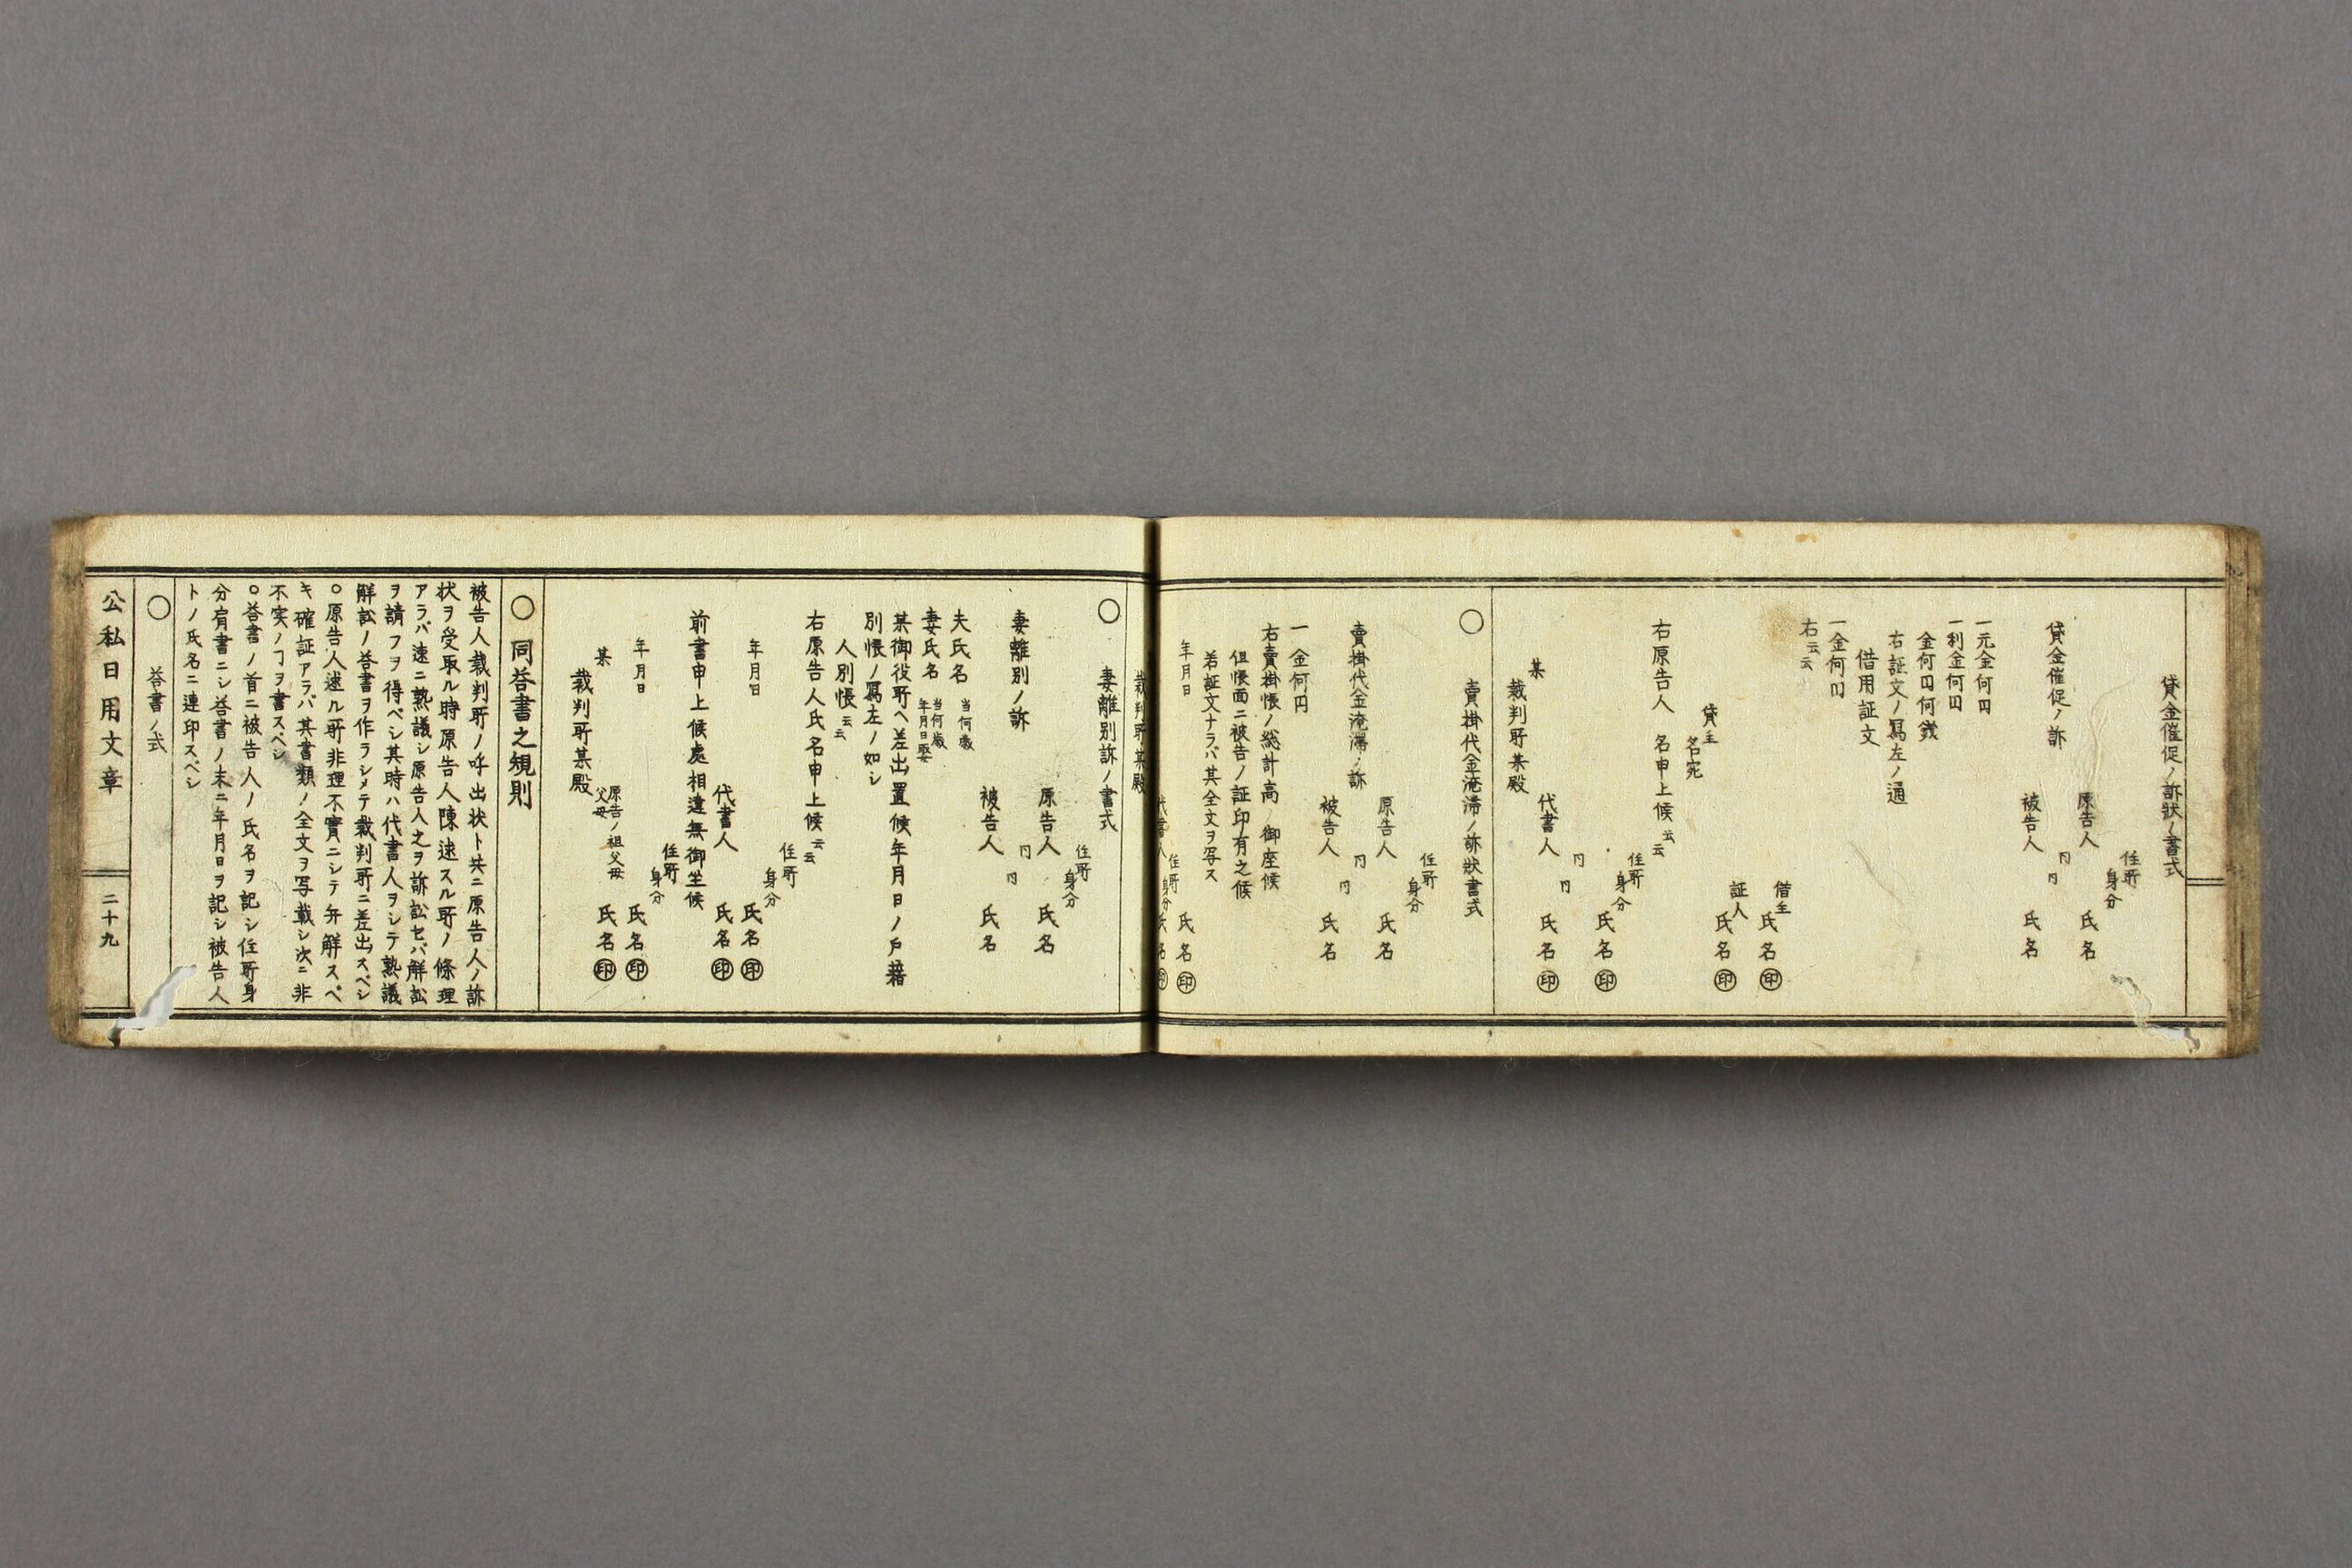 貸金催促ノ訴狀ノ書式
住所
身分
原告人 氏名
同 同
被告人 氏名
貸金催促ノ訴
一元金何円
一利金何円
金何円何銭
右証文ノ寫左ノ通
借用証文
一金何円
右云云
借主
氏名㊞
証人
氏名㊞
貸主
名宛
右原告人 名申上候云云
住所
身分
氏名㊞
同 同
代書人 氏名㊞
某
裁判所某殿
○ 賣掛代金淹滞ノ訴狀書式
住所
身分
原告人 氏名
同 同
被告人 氏名
賣掛代金淹滞ノ訴
一金何円
右賣掛帳ノ総計高ニ御座候
但帳面ニ被告ノ証印有之候
若証文ナラバ其全文ヲ写ス
年月日
住所
身分
氏名㊞
代書人 氏名㊞
裁判所某殿
○ 妻離別訴ノ書式
住所
身分
原告人 氏名
同 同
被告人 氏名
妻離別ノ訴
夫氏名 当何歳
妻氏名 当何歳
年月日娶
某御役所ヘ差出置候年月日ノ戸籍
別帳ノ寫左ノ如シ
人別帳云云
右原告人氏名申上候云云
住所
身分
年月日 氏名㊞
代書人 氏名㊞
前書申上候處相違無御坐候
住所
身分
年月日 氏名㊞
原告ノ祖父母
父母 氏名㊞
某
裁判所某殿
○同答書之規則
被告人裁判所ノ呼出状ト共ニ原告人ノ訴
状ヲ受取ル時原告人陳述スル所ノ條理
アラバ速ニ熟議シ原告人之ヲ訴訟セバ解訟
ヲ請フヲ得ベシ其時ハ代書人ヲシテ熟議
解訟ノ答書ヲ作ラシメテ裁判所ニ差出スベシ
○原告人述ル所非理不實ニシテ弁解スベ
キ確証アラバ其書類ノ全文ヲ写載シ次ニ非
不実ノヿヲ書スベシ
○答書ノ首ニ被告人ノ氏名ヲ記シ住所身
分肩書ニシ答書ノ末ニ年月日ヲ記シ被告人
トノ氏名ニ連印スベシ
○ 答書ノ式
公私日用文章 二十九